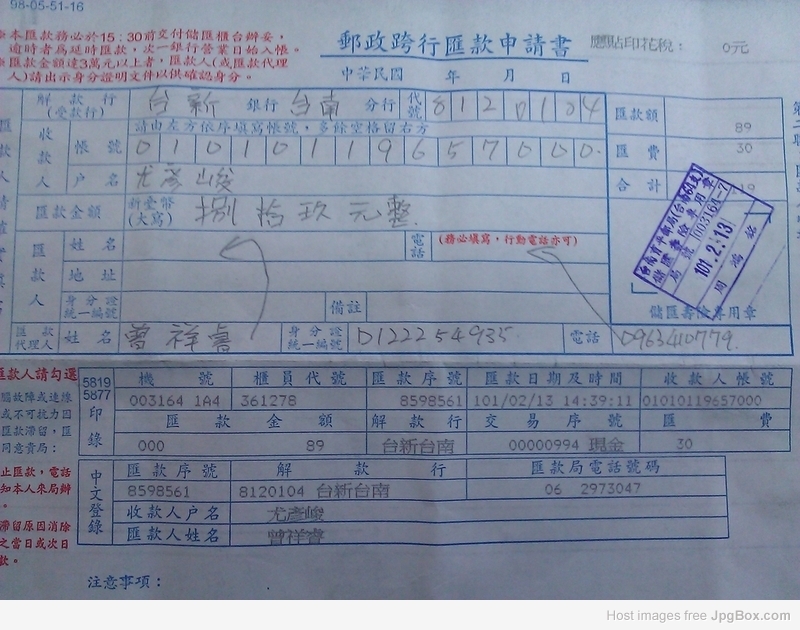 98-05-51-16
※本匯款務必於15:30前交付儲匯櫃台辦妥,
逾時者為延時匯款,次一銀行營業日始入帳。
※匯款金額達3萬元以上者,匯款人(或匯款代理
人)請出示身分證明文件以供確認身分。
郵政跨行匯款申請書
應貼印花稅: 0元
中華民國 年 月 日
解款行 (受款行) 台新 銀行 台南 分行 代號 8120104
匯款額 89
收款人 請由左方依序填寫帳號,多餘空格留右方
帳號 01010119657000
匯費 30
戶名 尤彥峻
合計 119
匯款金額 新臺幣 (大寫) 捌拾玖元整
匯款人 姓名 電話 (務必填寫,行動電話亦可)
地址
身分證 統一編號 備註
101.2.13
儲匯壽險專用章
匯款代理人 姓名 曾祥睿 身分證 統一編號 D122254935 電話 0963410779
匯款人請勾選
5819
5877
印錄
機號 櫃員代號 匯款序號 匯款日期及時間 收款人帳號
003164 1A4 361278 8598561 101/02/13 14:39:11 01010119657000
匯款金額 解款行 交易序號 匯費
000 89 台新台南 00000994 現金 30
中文登錄
匯款序號 解款行 匯款局電話號碼
8598561 8120104 台新台南 06 2973047
收款人戶名 尤彥峻
匯款人姓名 曾祥睿
注意事項:
Host images free JpgBox.com